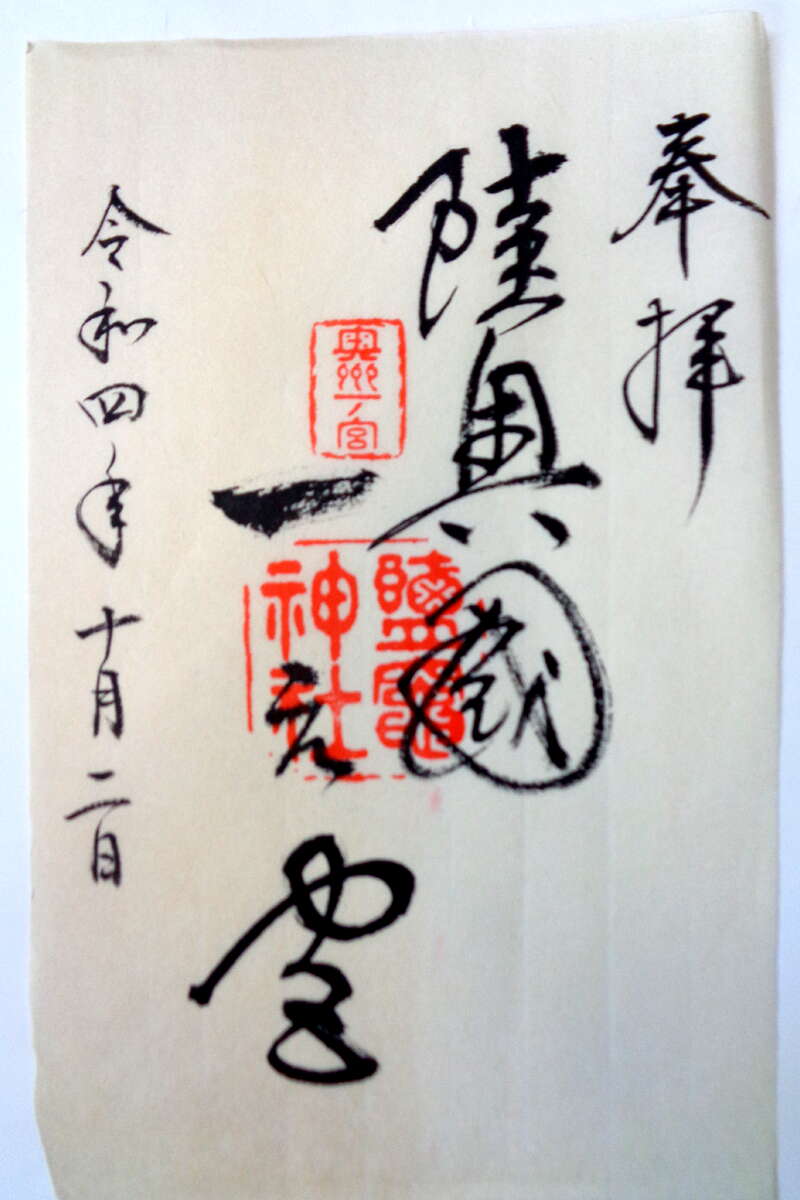 奉拝
陸奥國
一之宮
令和四年十月二日
奥州一ノ宮
鹽竈
神社